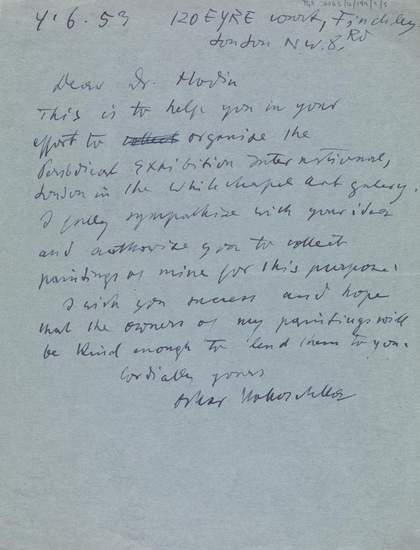 4.6.53 120 EYRE Court, Finchley Rd
London N.W.8.
Dear Dr. Hodin
This is to help you in your
effort to collect organise the
Periodical Exhibition International,
London in the Whitechapel Art gallery.
I fully sympathise with your idea
and authorize you to collect
paintings of mine for this purpose.
I wish you success and hope
that the owners of my paintings will
be kind enough to lend them to you.
Cordially yours
Oskar Kokoschka